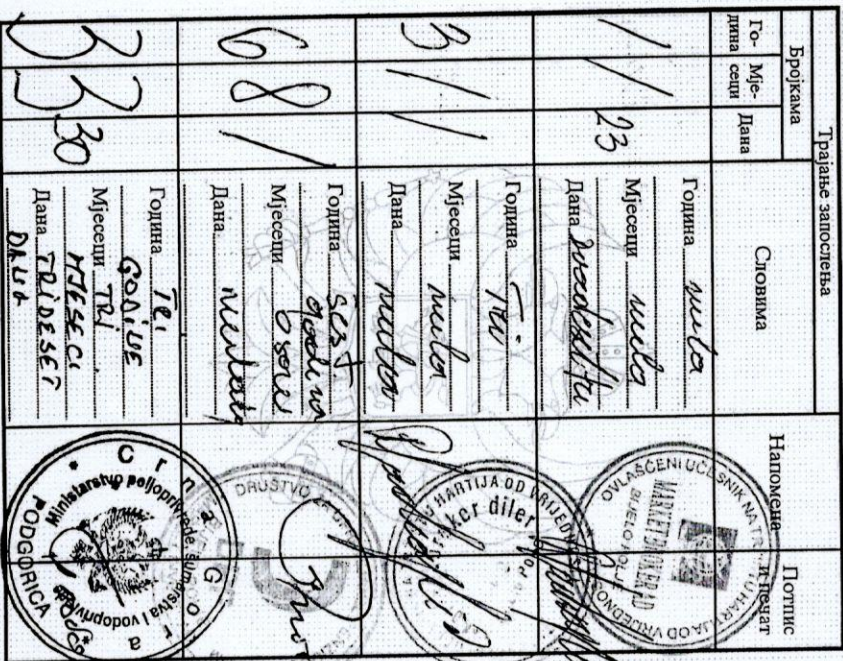 Трајање запослења
Бројкама
Словима
Напомена
Потпис и печат
Го-дина
Мје-сеци
Дана
/ / 23
Година nula
Мјесеци nula
Дана
OVLAŠĆENI UČESNIK NA TRŽIŠTU HARTIJA OD VRIJEDNO
BIJELO POLJE
3 / /
Година Tri
Мјесеци nula
Дана nula
HARTIJA OD VRIJEDNO
ker diler
6 8 /
Година šest godina
Мјесеци osam
Дана nula
DRUŠTVO ZA
3 3 30
Година TRI GODINE
Мјесеци TRI MJESECI
Дана TRIDESET DANA
Crna Gora
Ministarstvo poljoprivrede, šumarstva i vodoprivrede
PODGORICA